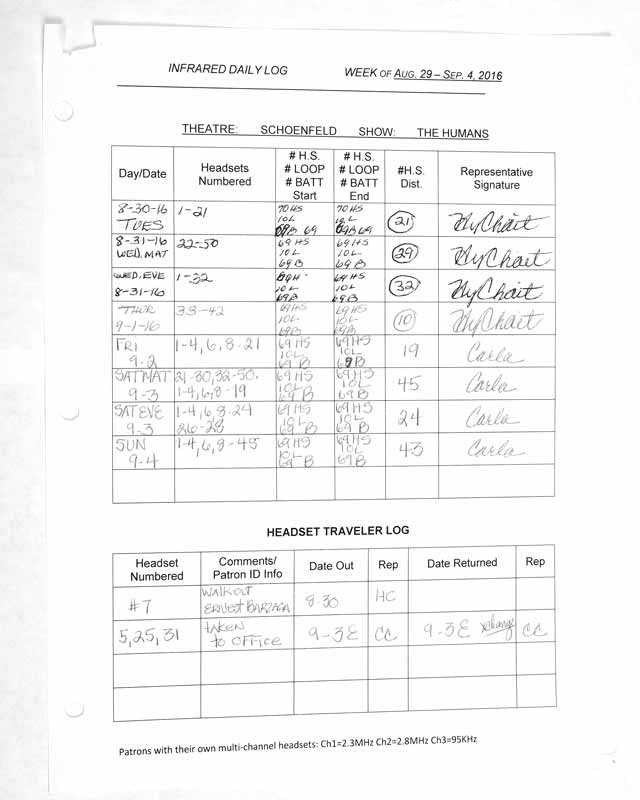 INFRARED DAILY LOG WEEK OF AUG. 29 – SEP. 4, 2016
THEATRE: SCHOENFELD SHOW: THE HUMANS
Day/Date
Headsets Numbered
# H.S. # LOOP # BATT Start
# H.S. # LOOP # BATT End
#H.S. Dist.
Representative Signature
8-30-16 TUES
1-21
70 HS 10 L 69
70 HS 69
21
8-31-16 WED, MAT
22-50
69 HS 10 L 69 B
69 HS 10 L 69 B
29
WED, EVE 8-31-16
1-32
10 L 69 B
69 HS 10 L 69 B
32
THUR 9-1-16
33-42
69 HS 10 L 69 B
69 HS 10 L 69 B
10
FRI 9-2
1-4, 6, 8-21
69 HS 10 L 69 B
69 HS 10 L 69 B
19
Carla
SAT MAT 9-3
21-30, 32-50. 1-4, 6, 8-19
69 HS 10 L 69 B
69 HS 10 L 69 B
45
Carla
SAT EVE 9-3
1-4, 6, 8-24 26-28
69 HS 10 L 69 B
69 HS 10 L 69 B
24
Carla
SUN 9-4
1-4, 6, 8-45
69 HS 10 L 69 B
69 HS 10 L 69 B
43
Carla
HEADSET TRAVELER LOG
Headset Numbered
Comments/ Patron ID Info
Date Out
Rep
Date Returned
Rep
#7
WALKOUT ERNEST BARZAGA
8-30
HC
5, 25, 31
TAKEN TO OFFICE
9-3 E
CC
9-3 E xchange
CC
Patrons with their own multi-channel headsets: Ch1=2.3MHz Ch2=2.8MHz Ch3=95KHz